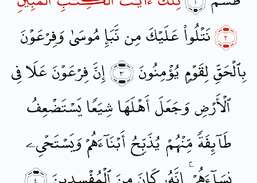 طسٓمٓ ١ تِلْكَ ءَايَٰتُ ٱلْكِتَٰبِ ٱلْمُبِينِ
٢ نَتْلُوا۟ عَلَيْكَ مِن نَّبَإِ مُوسَىٰ وَفِرْعَوْنَ
بِٱلْحَقِّ لِقَوْمٍ يُؤْمِنُونَ ٣ إِنَّ فِرْعَوْنَ عَلَا فِى
ٱلْأَرْضِ وَجَعَلَ أَهْلَهَا شِيَعًا يَسْتَضْعِفُ
طَآئِفَةً مِّنْهُمْ يُذَبِّحُ أَبْنَآءَهُمْ وَيَسْتَحْىِۦ
نِسَآءَهُمْ ۚ إِنَّهُۥ كَانَ مِنَ ٱلْمُفْسِدِينَ ٤